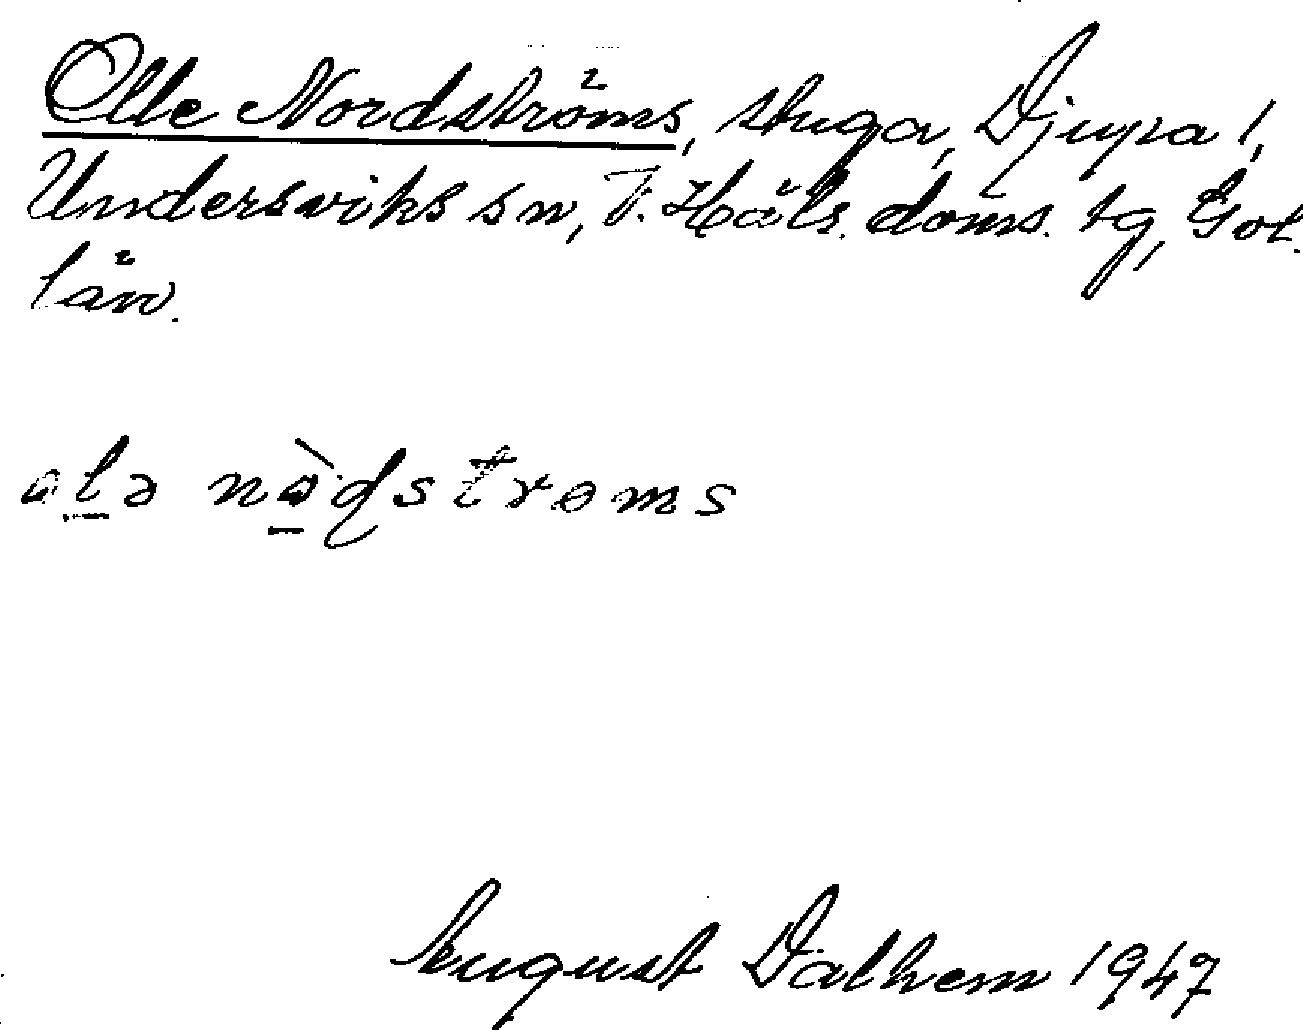 Olle Nordströms, stuga, Djupa 1,
Undersviks sn, V. Häls. doms. tg, Gvl.
län.
olə nɷ̀ɖstrɵms
August Dalhem 1947